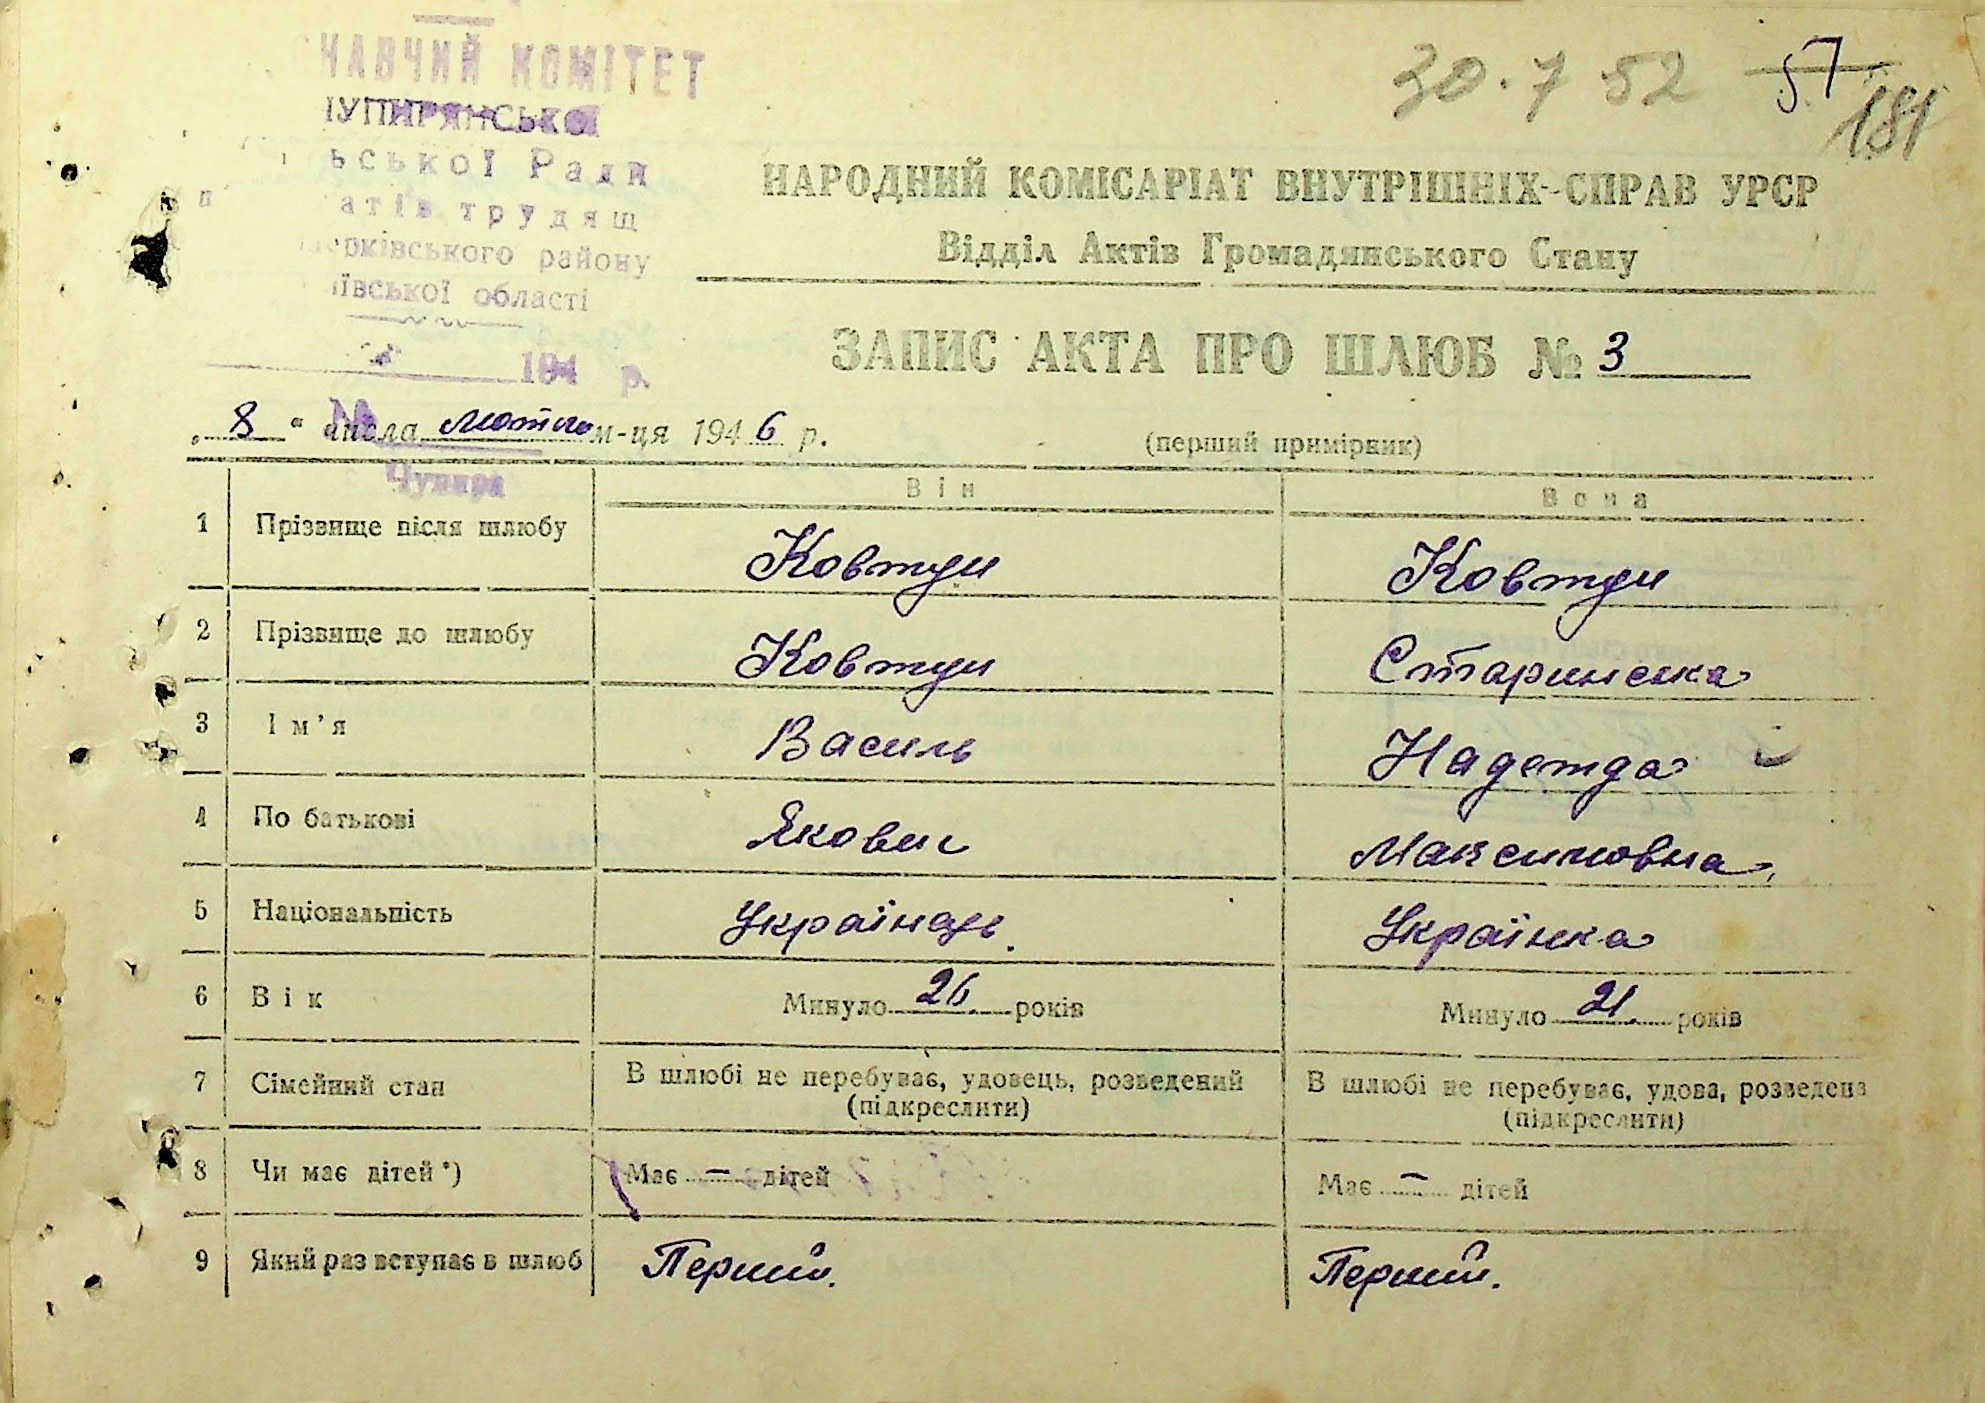 ЧАВЧИЙ КОМІТЕТ
ЧУПИРЯНСЬКОЇ
ЬСЬКОЇ Ради
атів трудящ
церківського району
ївської області
194 р.
№
Чупира
30.7 52
57
181
НАРОДНИЙ КОМІСАРІАТ ВНУТРІШНІХ СПРАВ УРСР
Відділ Актів Громадянського Стану
ЗАПИС АКТА ПРО ШЛЮБ № 3
„8“ числа лютого м-ця 1946 р.
(перший примірник)
Він Вона
1 Прізвище після шлюбу Ковтун Ковтун
2 Прізвище до шлюбу Ковтун Старинська
3 Ім’я Василь Надежда
4 По батькові Якович Максимовна
5 Національність Українець Українка
6 Вік Минуло 26 років Минуло 21 років
7 Сімейний стан В шлюбі не перебуває, удовець, розведений (підкреслити) В шлюбі не перебуває, удова, розведена (підкреслити)
8 Чи має дітей*) Має — дітей Має — дітей
9 Який раз вступає в шлюб Перший. Перший.